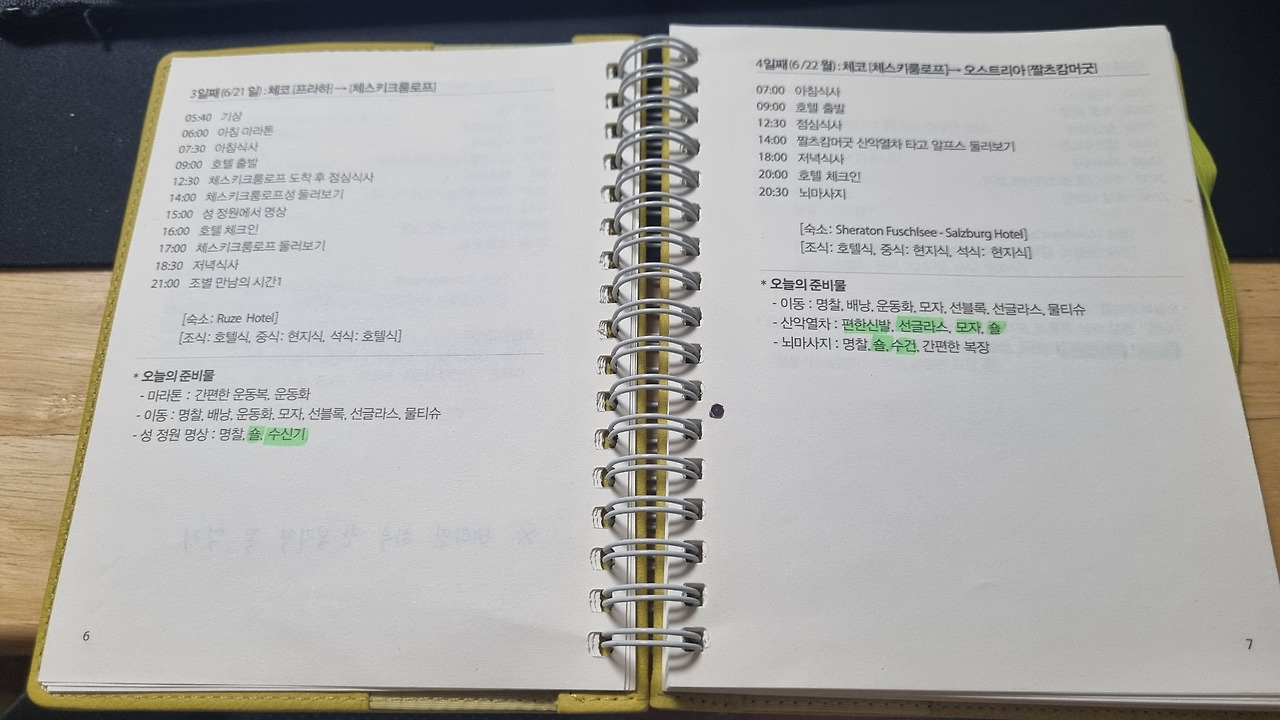 3일째 (6/21 일) : 체코 [프라하] → [체스키크룸로프]
05:40 기상
06:00 아침 마라톤
07:30 아침식사
09:00 호텔 출발
12:30 체스키크룸로프 도착 후 점심식사
14:00 체스키크룸로프성 둘러보기
15:00 성 정원에서 명상
16:00 호텔 체크인
17:00 체스키크룸로프 둘러보기
18:30 저녁식사
21:00 조별 만남의 시간1
[숙소 : Ruze Hotel]
[조식 : 호텔식, 중식 : 현지식, 석식 : 호텔식]
* 오늘의 준비물
- 마라톤 : 간편한 운동복, 운동화
- 이동 : 명찰, 배낭, 운동화, 모자, 선블록, 선글라스, 물티슈
- 성 정원 명상 : 명찰, 숄, 수신기
6
4일째 (6/22 월) : 체코 [체스키룸로프]→ 오스트리아 [짤츠캄머굿]
07:00 아침식사
09:00 호텔 출발
12:30 점심식사
14:00 짤츠캄머굿 산악열차 타고 알프스 둘러보기
18:00 저녁식사
20:00 호텔 체크인
20:30 뇌마사지
[숙소 : Sheraton Fuschlsee - Salzburg Hotel]
[조식 : 호텔식, 중식 : 현지식, 석식 : 현지식]
* 오늘의 준비물
- 이동 : 명찰, 배낭, 운동화, 모자, 선블록, 선글라스, 물티슈
- 산악열차 : 편한신발, 선글라스, 모자, 숄
- 뇌마사지 : 명찰, 숄, 수건, 간편한 복장
7